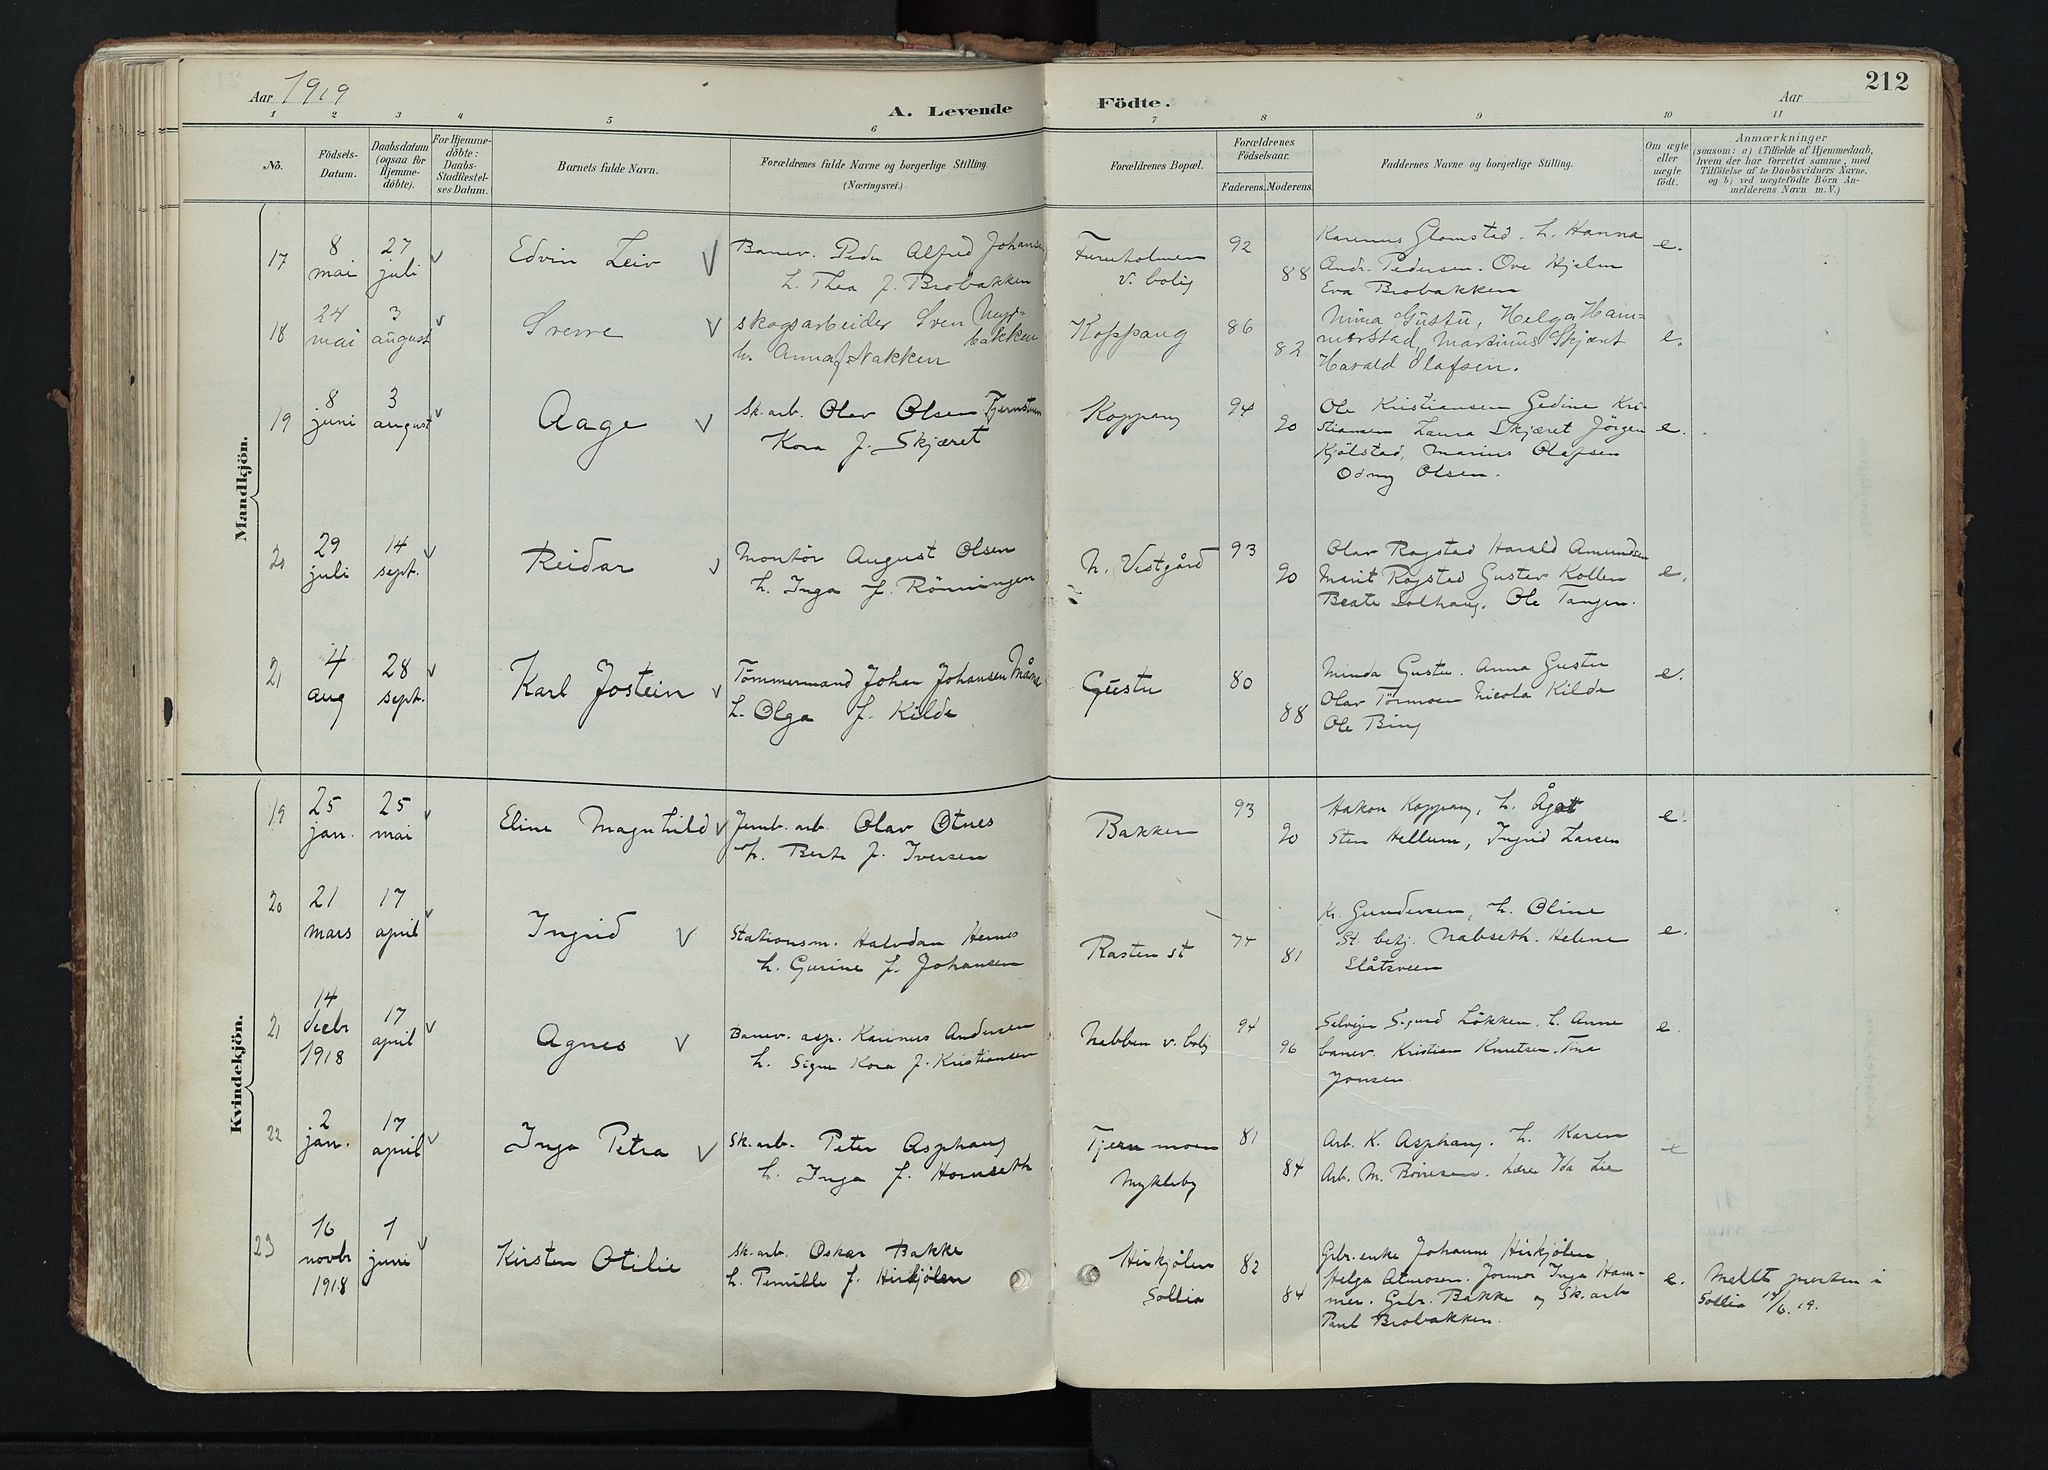 Aar 1919
A. Levende Födte.
Aar
212
1 2 3 4 5 6 7 8 9 10 11
No.
Födsels-Datum.
Daabsdatum (ogsaa for Hjemmedöbte).
For Hjemmedöbte: Daabs-Stadfæstelses Datum.
Barnets fulde Navn.
Forældrenes fulde Navne og borgerlige Stilling. (Næringsvei.)
Forældrenes Bopæl.
Forældrenes Födselsaar.
Faderens. Moderens.
Faddernes Navne og borgerlige Stilling.
Om ægte eller uægte födt.
Anmærkninger
(saasom: a) i Tilfælde af Hjemmedaab, hvem der har forrettet samme, med Tilföielse af to Daabsvidners Navne, og b) ved uægtefödte Börn Anmelderens Navn m. V.)
Mandkjön.
17 8 mai 27 juli v Edvin Leiv v
Banev. Peder Alfred Johansen
h. Thea f. Brobakken
Fureholmen v. bolig 92 88
Karenus Glomstad. h. Hanna
Andr. Pedersen. Ove Hjelm
Eva Brobakken
e.
18 24 mai 3 august v Sverre v
skogsarbeider Sven Myrbakken
h. Anna f. Nakken
Koppang 86 82
Mina Gustu, Helga Ham-
merstad, Martinus Skjæret
Harald Olafsen.
e.
19 8 juni 3 august v Aage v
Sk.arb. Olav Olsen Tjernstuen
Kora f. Skjæret
Koppang 94 90
Ole Kristiansen Gedine Kri-
stiansen Laura Skjæret Jörgen
Kjölstad, Marius Olafsen
Odny Olsen.
e.
20 29 juli 14 sept. v Reidar v
Montör August Olsen
h. Inga f. Rönningen
N. Vestgård 93 90
Olav Rogstad Harald Amundsen
Marit Rogstad Gustav Kollen
Beate Solhaug. Ole Tangen.
e.
21 4 aug 28 sept. v Karl Jostein v
Tömmermand Johan Johansen
h. Olga f. Kilde
Gustu 80 88
Minda Gustu. Anna Gustu
Olav Törmoen Nicola Kilde
Ole Bing
e.
Kvindekjön.
19 25 jan. 25 mai v Eline Magnhild v
Jernb. arb. Olav Otnes
h. Berte f. Iversen
Bakken 93 90
Hakon Koppang, h. Ågot
Sten Hellum, Ingrid Larsen
e.
20 21 mars 17 april v Ingrid v
Stationsm. Halvdan Hernes
h. Gurine f. Johansen
Rasten st 74 81
Kr. Gundersen, h. Oline
St. betj. Nabseth. Helene
Slåtsveen
e.
21 14 decbr 1918 17 april v Agnes v
Banev. asp. Karinus Andersen
h. Signe Kora f. Kristiansen
Nabben v. bolig 94 96
Selveier Sigurd Løkken. h. Anne
banev. Kristian Knutsen. Tina
Jonsen.
e.
22 2 jan. 17 april v Inga Petra v
Sk.arb. Peter Asphaug
h. Inga f. Hornseth
Tjernmoen Mykleby 81 84
Arb. K. Asphaug. h. Karen
Arb. M. Börresen. Lærer Ida Lie
e
23 16 novbr 1918 1 juni v Kirsten Otilie
Sk.arb. Oskar Bakke
h. Pernille f. Hirkjölen
Hirkjölen Sollia 82 84
Gbr. enke Johanne Hirkjölen
Helga Atneosen. Jormor Inga Ham-
mer. Gbr. Bakke og Sk.arb
Paul Brobakken.
e.
Meldt presten i
Sollia 19.